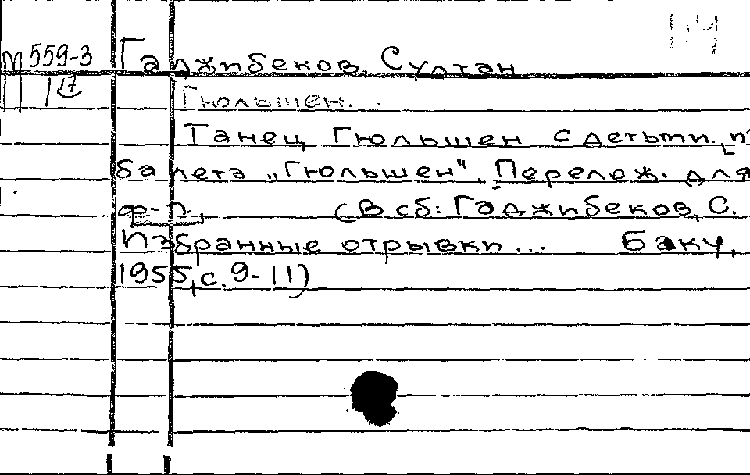 М 559-3 Гаджибеков, Султан
17
Гюльшен.
Танец Гюльшен с детьми. [из
балета „Гюльшен". Перелож. для
ф-п.] (В сб: Гаджибеков, С.
Избранные отрывки... Баку,
1955, с. 9-11)